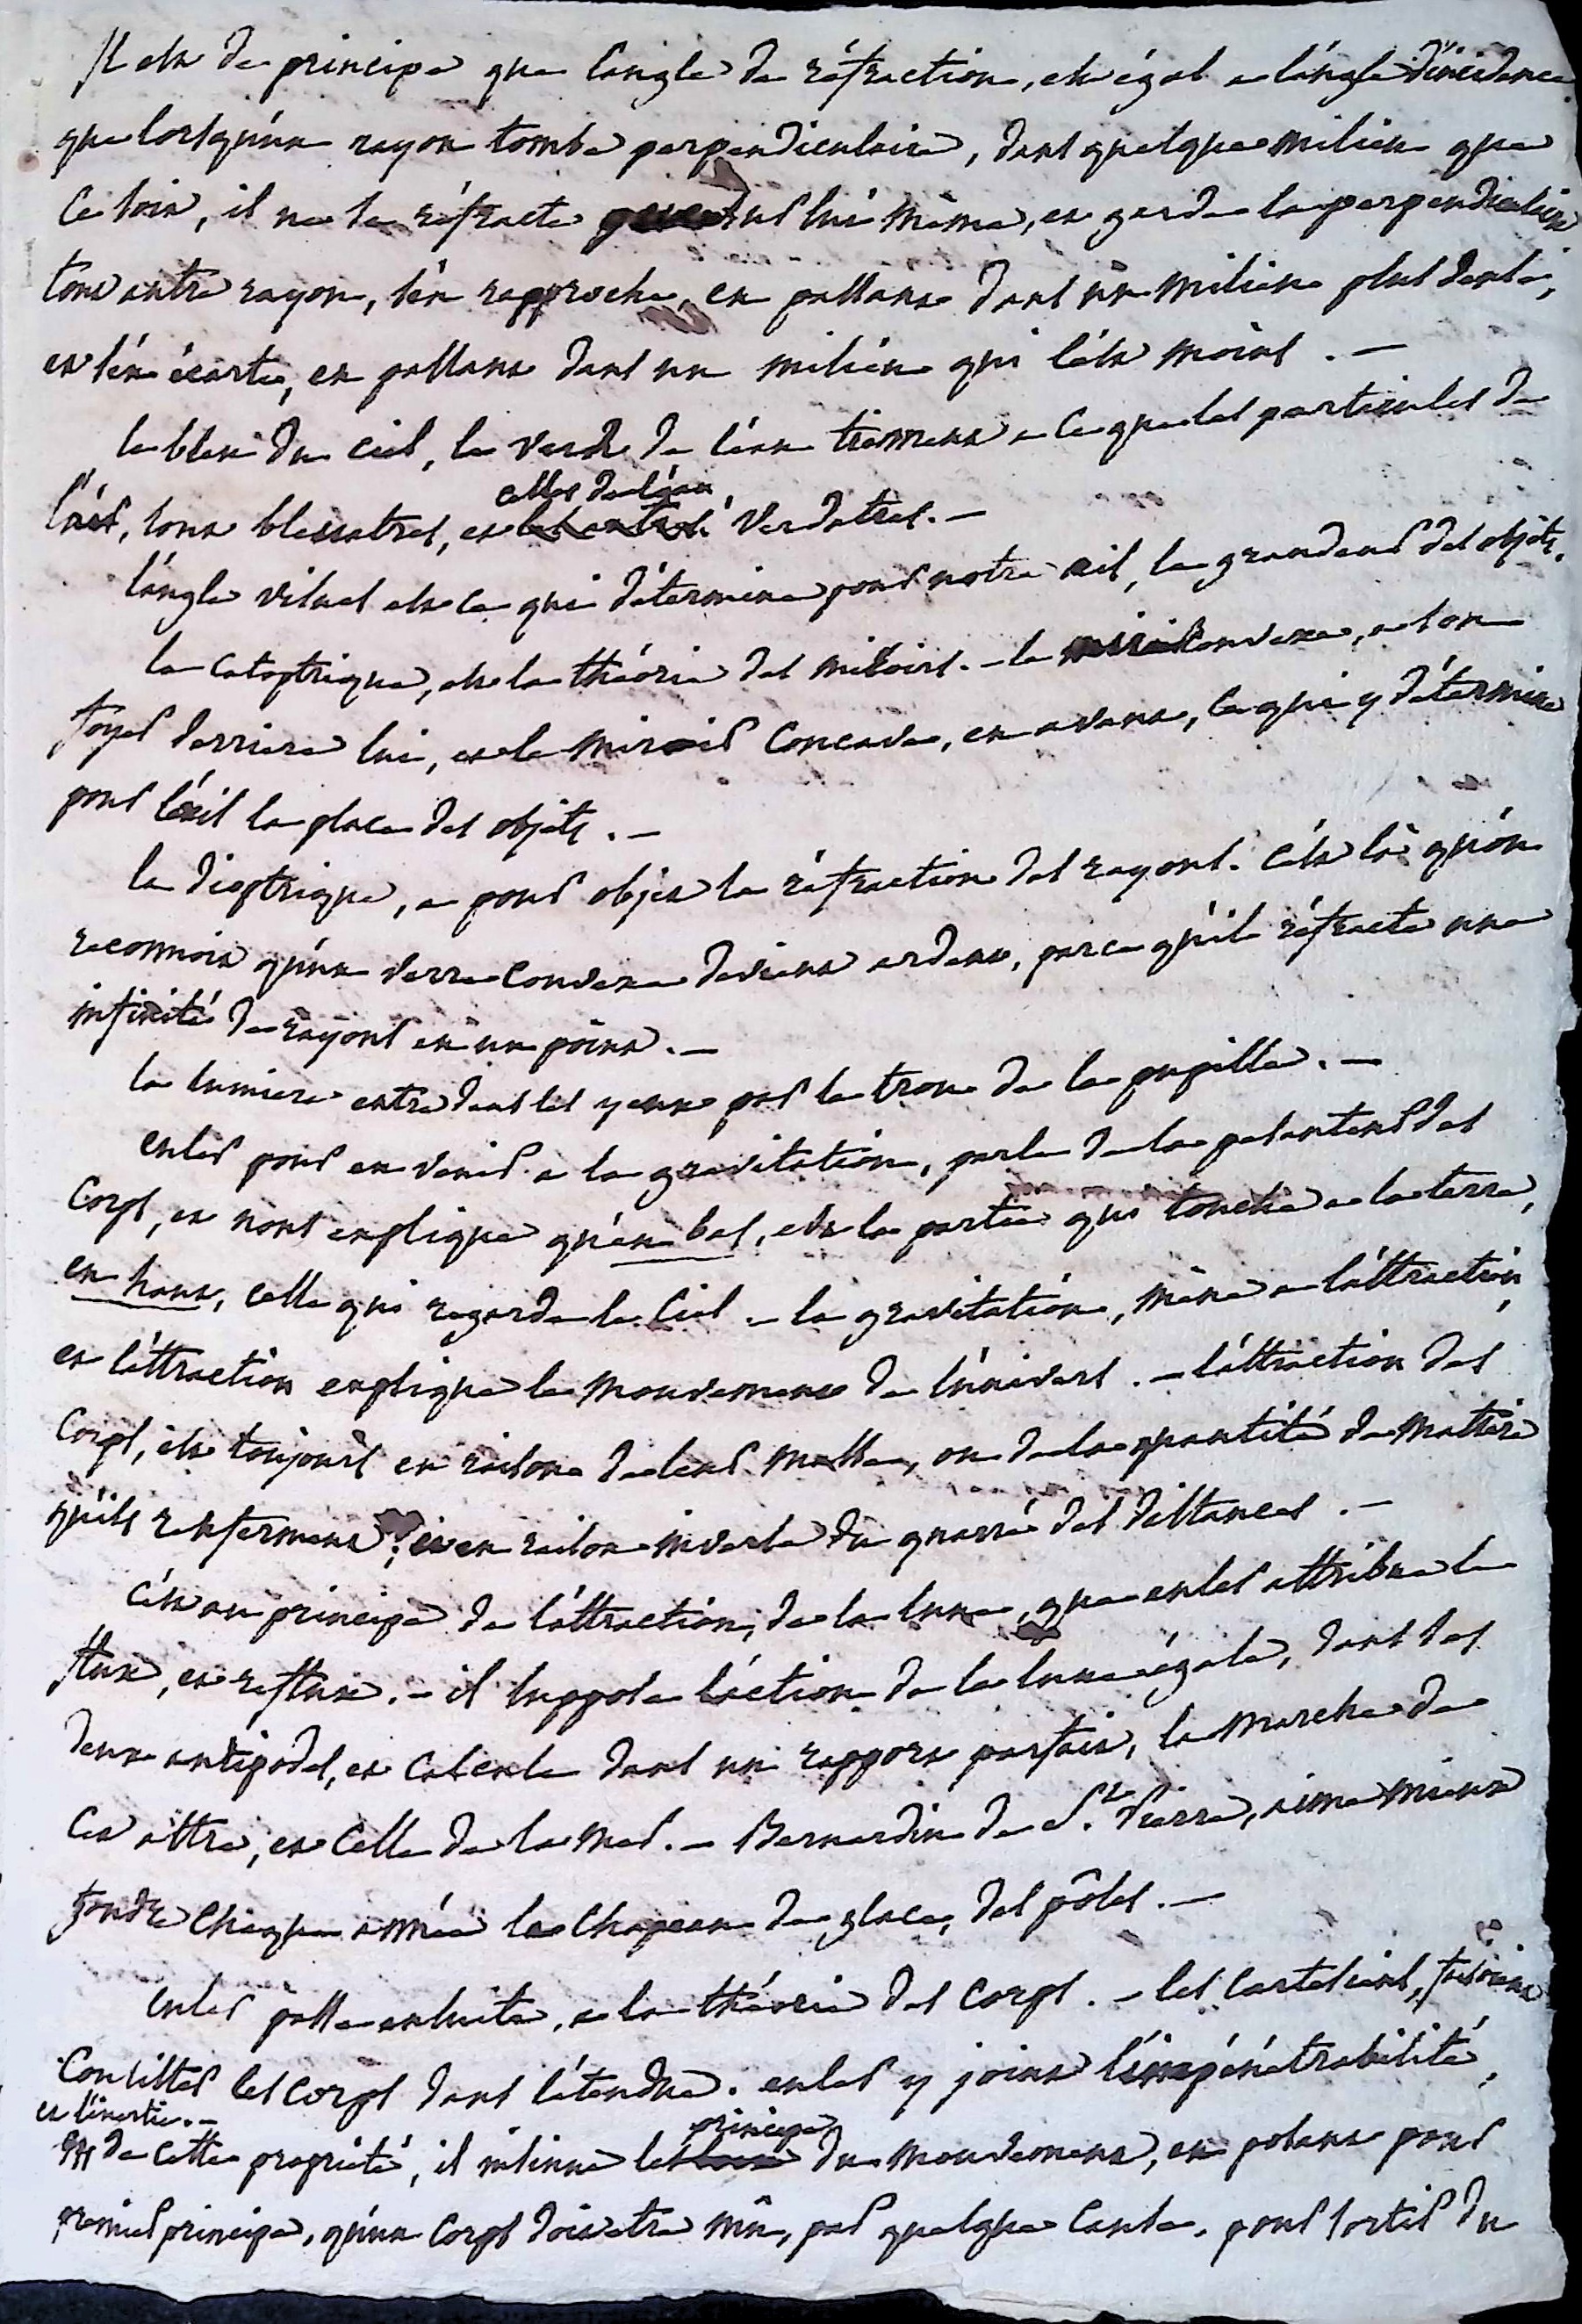 Il est de principe que l'angle de réfraction, est égal a l'angle d'incidence
que lorsqu'un rayon tombe perpendiculaire, dans quelque milieu que
ce soit, il ne se réfracte que sur lui même, et garde la perpendiculaire
tout autre rayon, s'en rapproche, en passant dans un milieu plus dense,
et s'en écarte, en passant dans un milieu qui l'est moins. —
le bleu du ciel, le verd de l'eau tiennent a ce que les particules de
l'air, sont bleuatres, et celles de l'eau verdatres. —
l'angle visuel est ce qui détermine pour notre œil, la grandeur des objets.
la catoptrique, est la théorie des miroirs. — le miroir convexe, a son
foyer derriere lui, et le miroir concave, en avant, ce qui y détermine
pour l'œil la place des objets. —
la dioptrique, a pour objet la réfraction des rayons. c'est là qu'on
reconnoit qu'un verre convexe devient ardent, parce qu'il réfracte une
infinité de rayons en un point. —
la lumiere entre dans les yeux par le trou de la pupille. —
euler pour en venir a la gravitation, parle de la pesanteur des
corps, et nous explique qu'en bas, est la partie qui touche a la terre,
en haut, celle qui regarde le ciel. — la gravitation, mène a l'attraction,
et l'attraction explique le mouvement de l'univers. — l'attraction des
corps, est toujours en raison de leur masse, ou de la quantité de matière
qu'ils renferment; et en raison inverse du quarré des distances. —
c'est au principe de l'attraction, de la lune, que euler attribue le
flux, et reflux. — il suppose l'action de la lune égale, dans les
deux antipodes, et calcule dans un rapport parfait, la marche de
cet astre, et celle de la mer. — Bernardin de St. Pierre, aime mieux
fondre chaque année le chapeau de glace, des pôles. —
euler passe ensuite, a la théorie des corps. — les cartésiens, faisoient
consister les corps dans l'étendue. euler y joint l'impénétrabilité,
et l'inertie. —
de cette propriété, il insinue les principes du mouvement, en posant pour
premier principe, qu'un corps doit etre mû, par quelque cause, pour sortir du